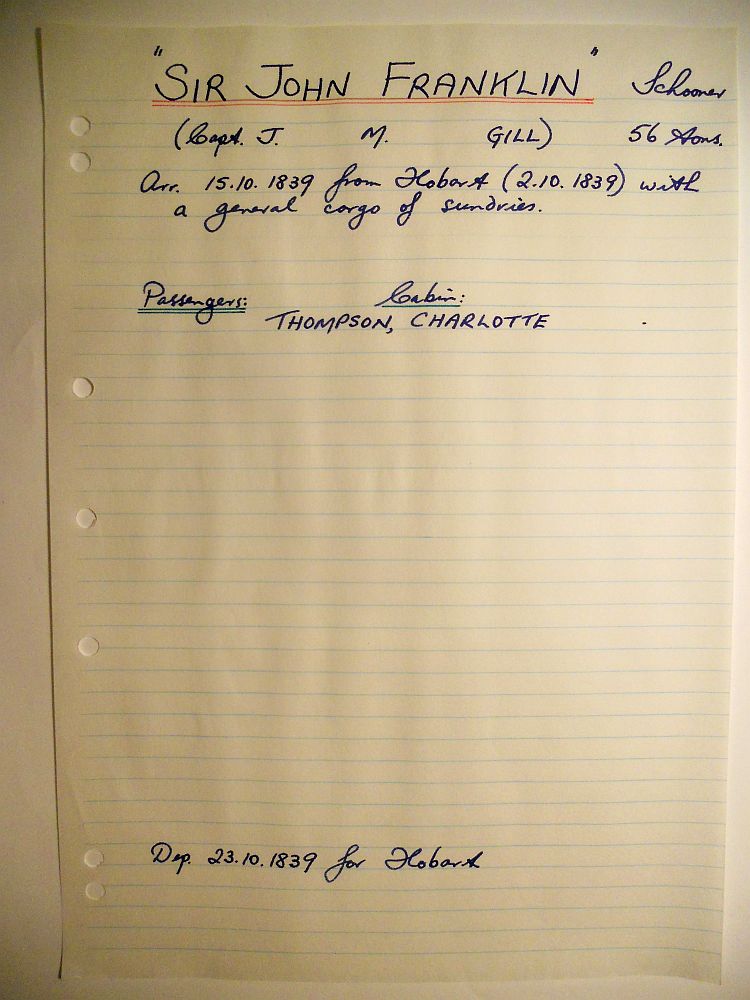 "SIR JOHN FRANKLIN" Schooner
(Capt. J. M. GILL) 56 tons.
Arr. 15.10.1839 from Hobart (2.10.1839) with
a general cargo of sundries.
Passengers: Cabin:
THOMPSON, CHARLOTTE
Dep. 23.10.1839 for Hobart